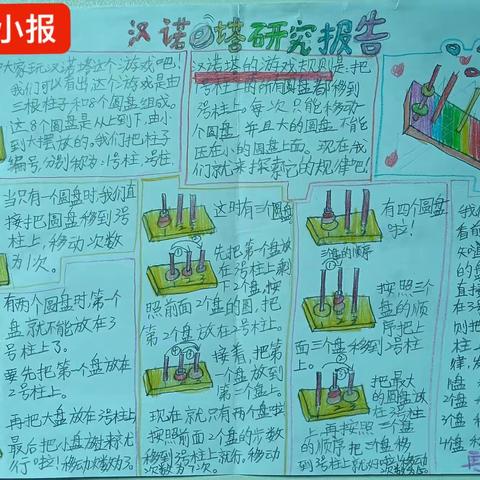 小报
汉诺塔研究报告
大家玩汉诺塔这个游戏吧！
我们可以看出这个游戏是由
三根柱子和8个圆盘组成。
这8个圆盘是从上到下,由小
到大摆放的。我们把柱子
编号,分别称为1号柱,2号柱
汉诺塔的游戏规则是:把
1号柱上的所有圆盘都移到
3号柱上。每次只能移动
一个圆盘,并且大的圆盘不能
压在小的圆盘上面。现在我
们就来探索它的规律吧!
当只有一个圆盘时我们直
接把圆盘移到3号
柱上,移动次数
为1次。
有两个圆盘时第一个
盘就不能放在3
号柱上了。
要先把第一个盘放在
2号柱上。
再把大盘放在3号柱上
最后把小盘放
行啦!移动次数为3。
这时有三个圆盘
先把第一个盘放
在3号柱上剩
下2个盘按
照前面2个盘的图,把
第2个盘放在2号柱上
接着,把第
一个盘放到
第二个盘上。
现在就只有两个盘啦
按照前面2个盘的步数
移到3号柱上就行。移动
次数为7次。
有四个圆盘
啦!
三盘的顺序
按照三个
盘的顺
序把上
面三个盘移到2号柱
上。
把最大
的圆盘放
在3号柱
上,再按照三个盘
的顺序把三个盘移
到3号柱上就好啦
我们
看前
知道
盘
直接
在3
则把
1盘
2个盘
3个盘
4个盘